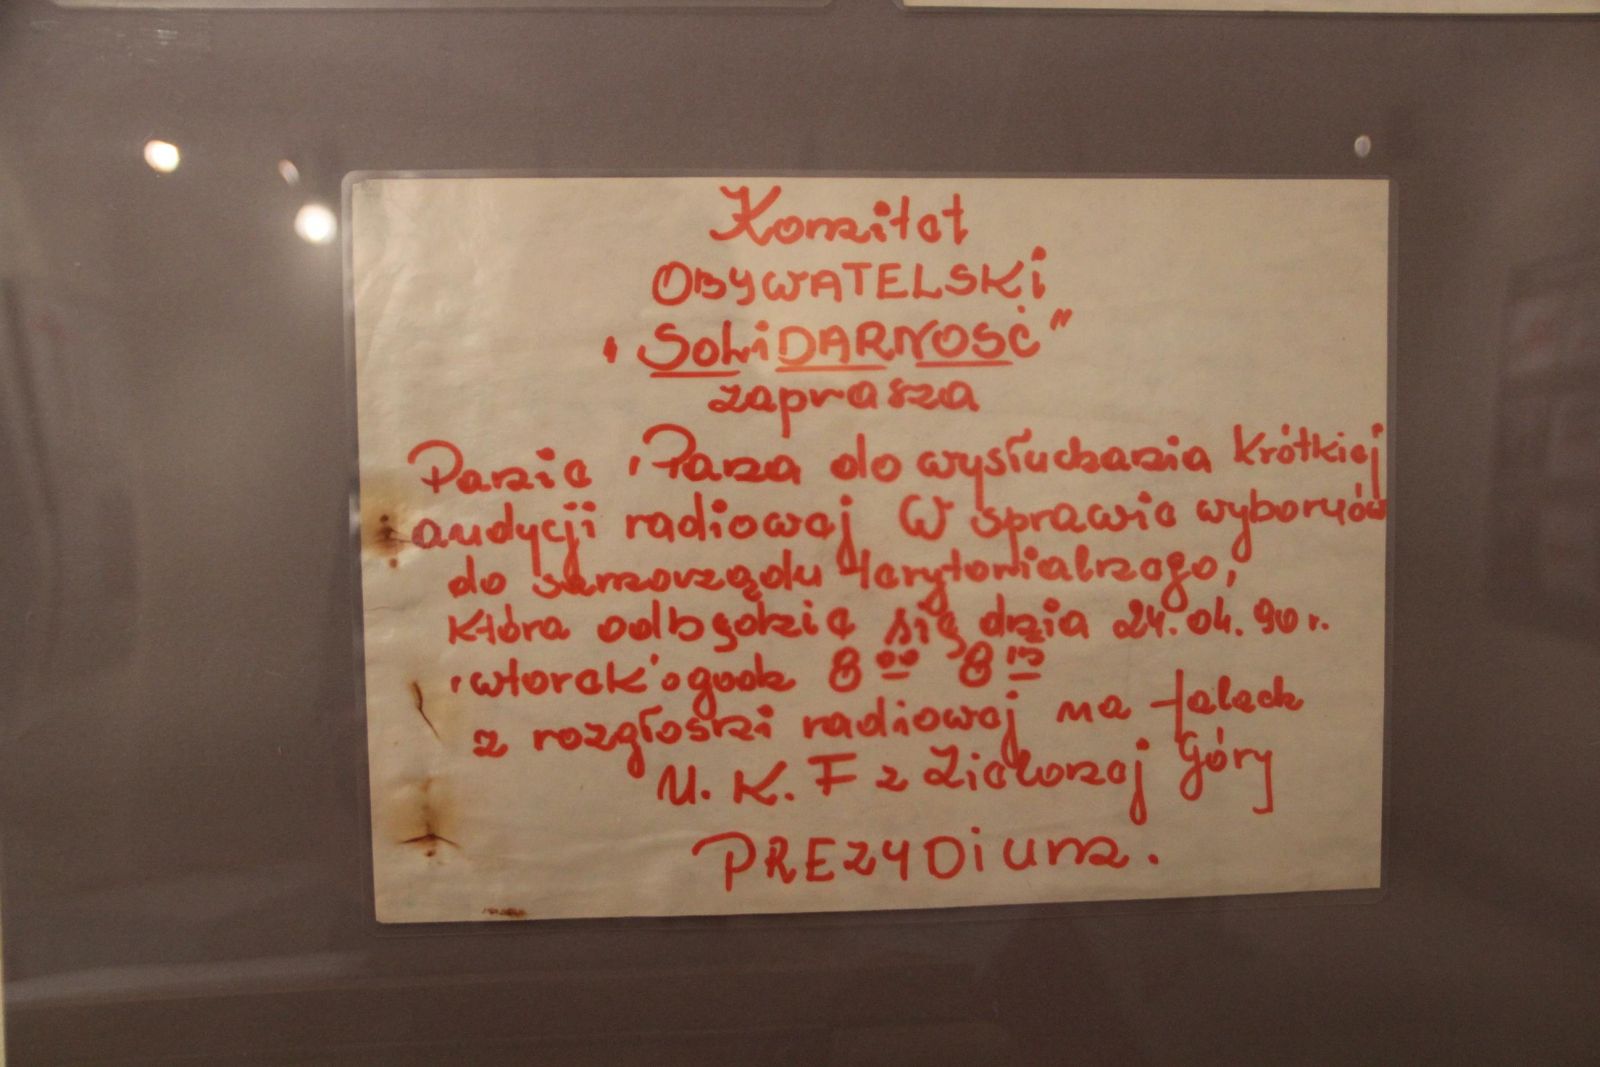 Komitet
OBYWATELSKi
"SOLiDARNOŚĆ"
zaprasza
Panie i Pana do wysłuchania krótkiej
audycji radiowej w sprawie wyborów
do samorządu terytorialnego,
która odbędzie się dnia 24.04.90 r.
"wtorek" o godz 8 00 - 8 15
z rozgłośni radiowej na falach
U.K.F z Zielonej Góry
PREZYDiUM.